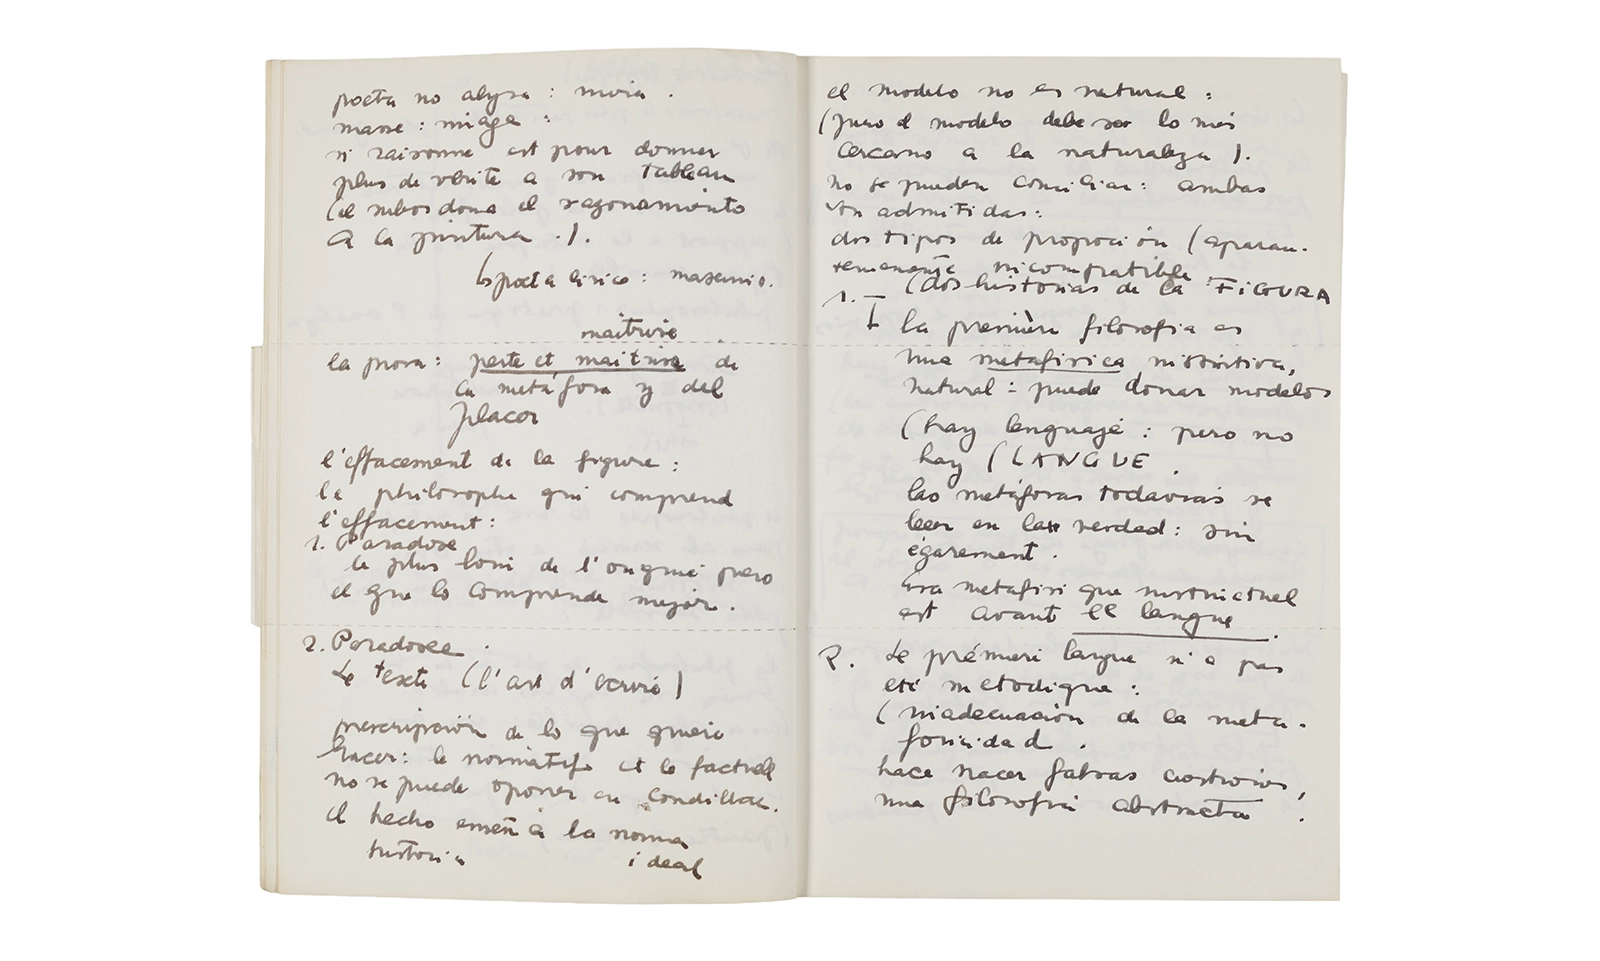 poeta no alysa : nivia .
masse : miage :
si raisonne est pour donner
plus de vérité a son tableau
(el subordona el razonamiento
a la pintura . ) .
poeta lirico :
maitrise
la prosa : perte et maitrise de
la metáfora y del
placer
l'effacement de la figure :
le philosophe qui comprend
l'effacement :
1. Paradoxe
le plus loin de l'origine pero
el que lo comprende mejor .
2. Paradoxe .
Le texte (l'art d'ecrire)
prescripción de lo que quiere
hacer : le normatif et le factuel
no se puede oponer en Condillac .
el hecho enseña la norma
historia ideal
el modelo no es natural :
(pero el modelo debe ser lo más
cercano a la naturaleza ) .
no se pueden conciliar : ambas
son admitidas :
dos tipos de proposición (aparen-
temente incompatible
(dos historias de la FIGURA
1. I la première filosofia es
una metafisica instintiva,
natural : puede donar modelos
(hay lenguaje : pero no
hay (LANGUE .
las metáforas todavias se
leer en las verdad : sin
égarement .
era metafisique instinctuel
est avant el langue .
2. Le prémieri langue n'a pas
eté metodique :
(inadecuación de la meta-
foricidad .
hace nacer falsas ,
una filosofia abstracta .